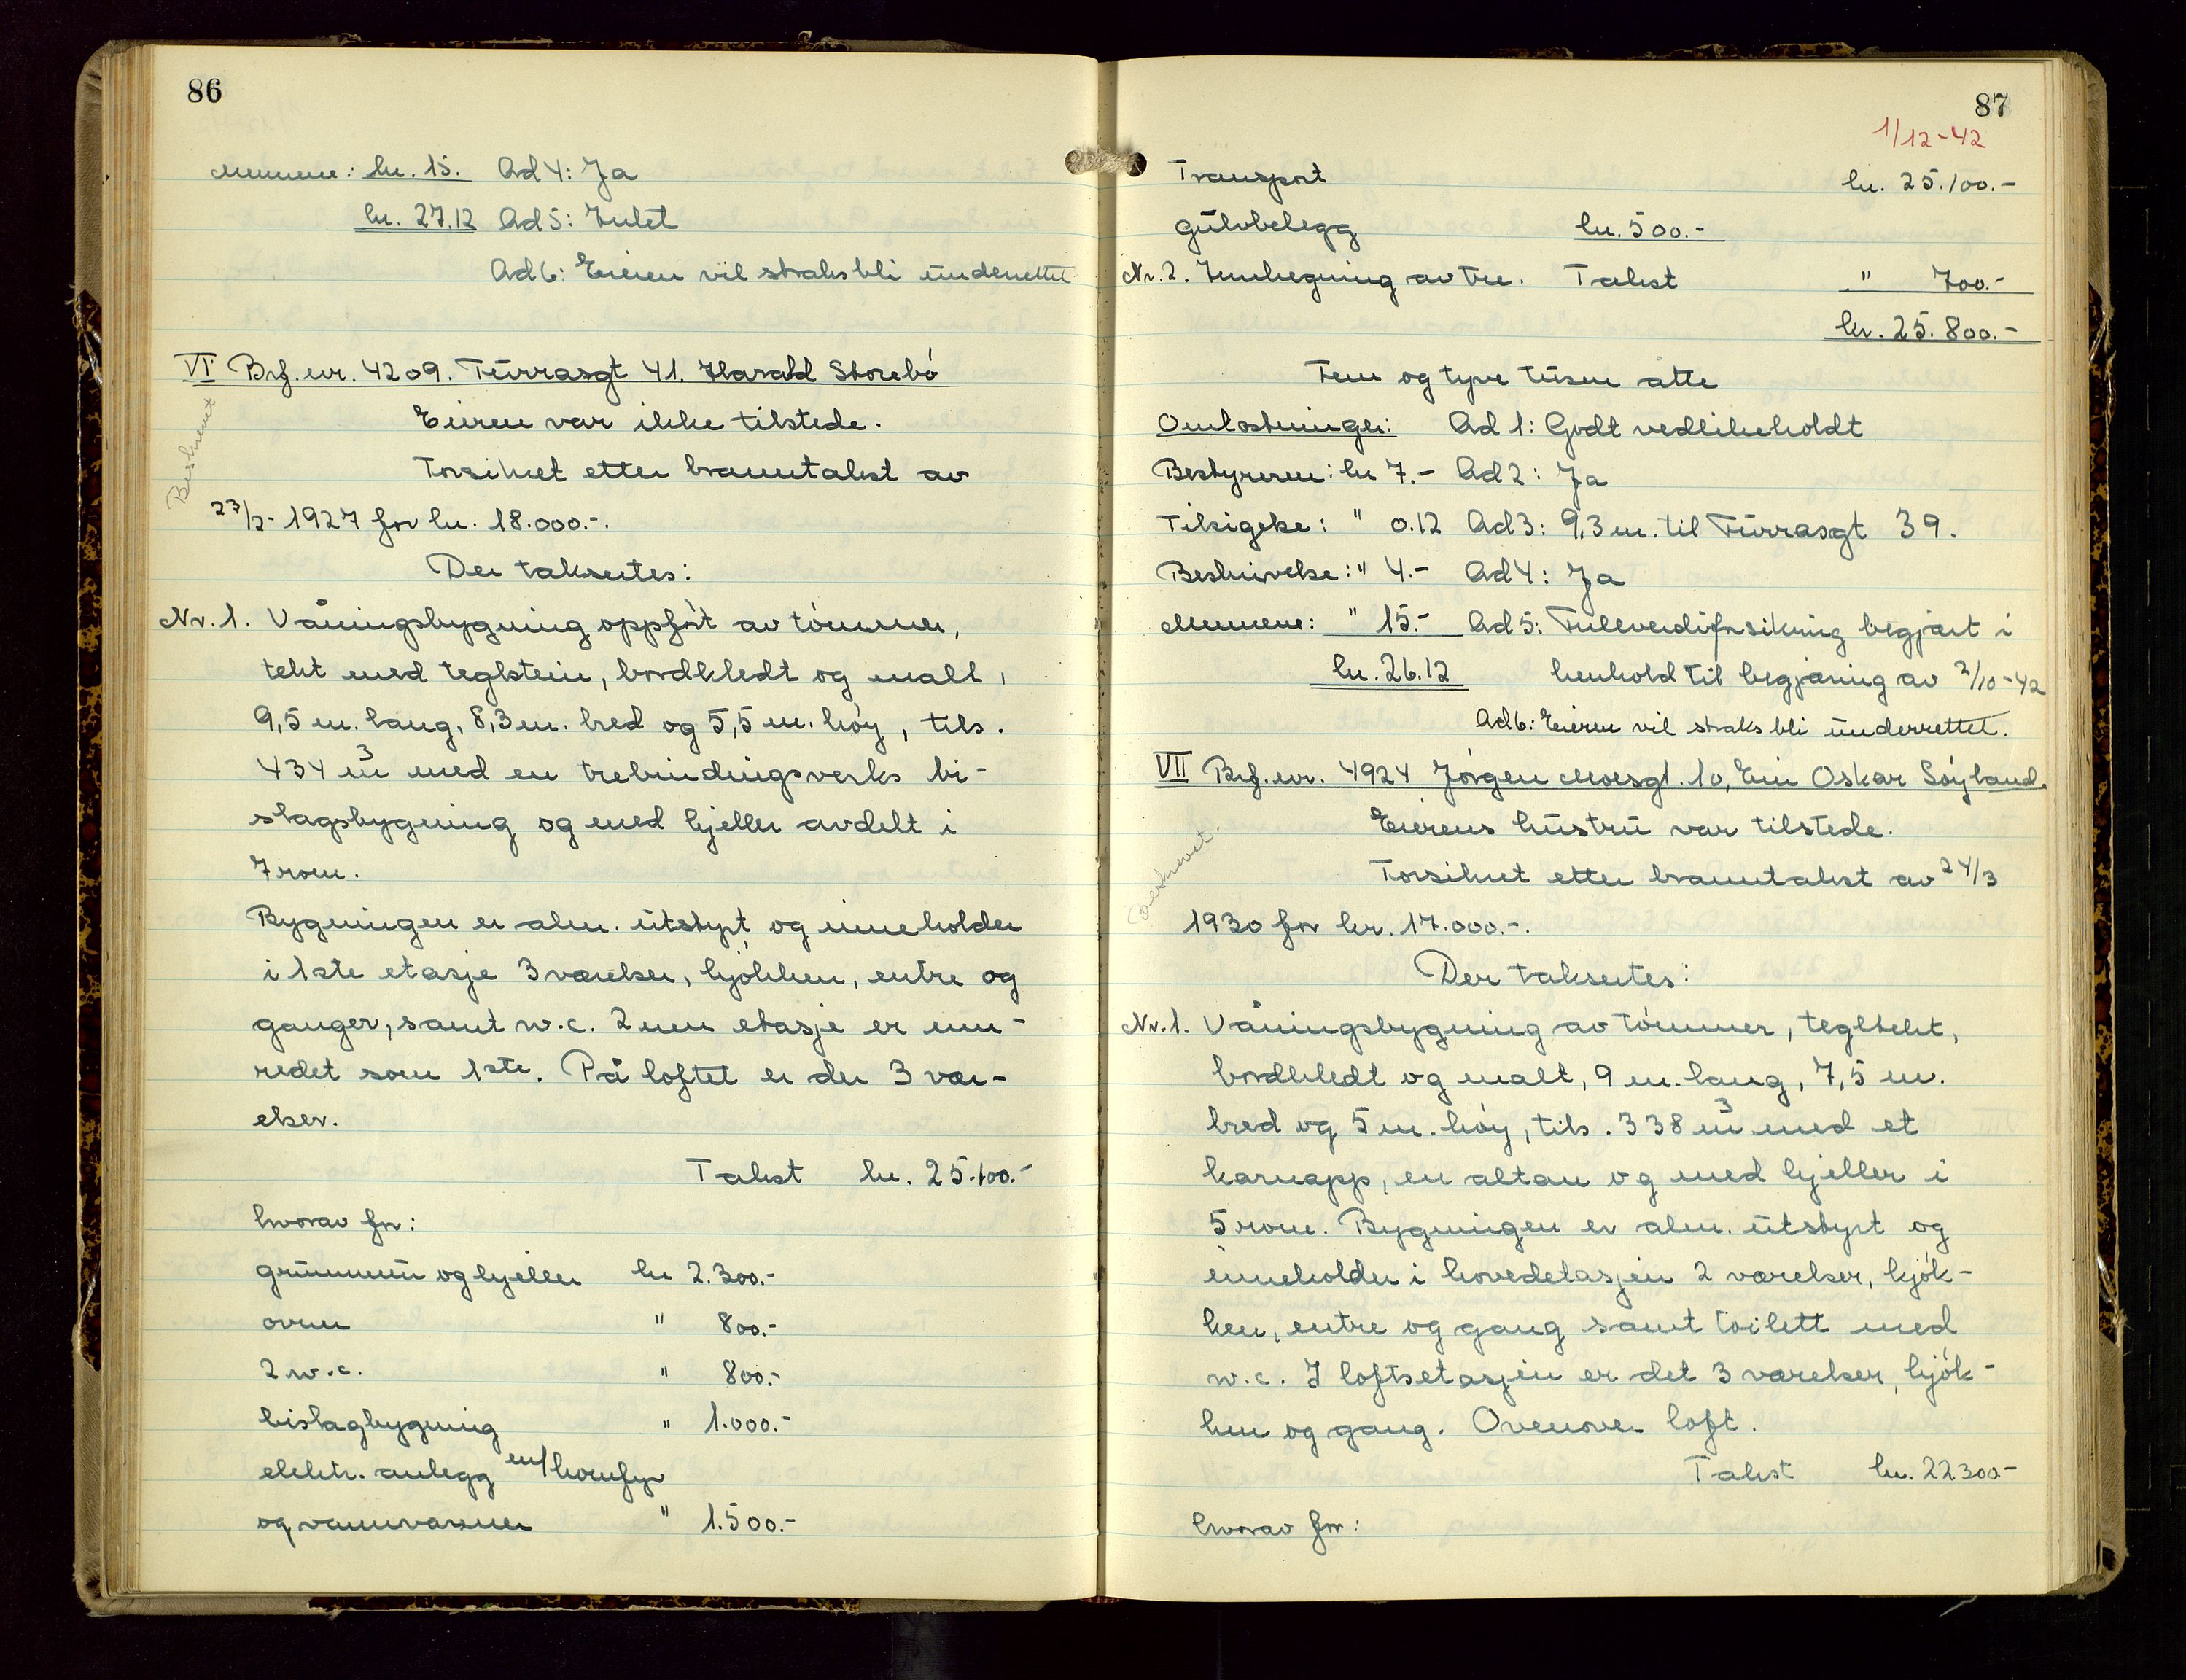 86
Mennene: kr. 15. Ad 4: Ja
kr. 27.12 Ad 5: Intet
Ad 6: Eieren vil straks bli underrettet
VI Brf. nr. 4209. Furrasgt 41. Harald Storebó
Eieren var ikke tilstede.
Forsikret etter branntakst av
23/2- 1927 for kr. 18.000.-.
Beskrevet
Der takseertes:
Nr. 1. Våningsbygning oppfört av tömmer,
tekt med teglstein, bordkledt og malt,
9,5 m. lang, 8,3 m. bred og 5,5 m. höy, tils.
434 m³ med en trebindingsverks bi-
slagsbygning og med kjeller avdelt i
7 rom.
Bygningen er alm. utstyrt og inneholder
i 1ste etasje 3 værelser, kjökken, entre og
ganger, samt w.c. 2nen etasje er inn-
redet som 1ste. På loftet er der 3 vær-
elser.
Takst kr. 25.100.-
hvorav for:
grunnmur og kjeller kr 2.300.-
ovner " 800.-
2 w.c. " 800.-
bislagbygning " 1.000.-
elektr. anlegg m/komfyr
og vannvarmer " 1.500.-
87
1/12-42
Transport kr. 25.100.-
gulvbelegg kr. 500.-
Nr. 2. Innhegning av tre. Takst " 700.-
kr. 25.800.-
Fem og tyve tusen åtte
Omkostninger: Ad 1: Godt vedlikeholdt
Bestyreren: kr 7.- Ad 2: Ja
Tilsigelse: " 0.12 Ad 3: 9,3 m. til Furrasgt 39.
Beskrivelse: " 4.- Ad 4: Ja
Mennene: " 15.- Ad 5: Fulleverdiforsikring begjært i
kr. 26.12 henhold til begjæring av 2/10-42
Ad 6: Eieren vil straks bli underrettet.
VII Brf. nr. 4924 Jörgen Moesgt. 10, Eier Oskar Söyland.
Eierens hustru var tilstede.
Forsikret etter branntakst av 24/3
1930 for kr. 17.000.-.
Beskrevet.
Der takseertes:
Nr. 1. Våningsbygning av tömmer, tegltekt,
bordkledt og malt, 9 m. lang, 7,5 m.
bred og 5 m. höy, tils. 338 m³ med et
karnapp, en altan og med kjeller i
5 rom. Bygningen er alm. utstyrt og
inneholder i hovedetasjen 2 værelser, kjök-
ken, entre og gang samt toilett med
w.c. I loftsetasjen er det 3 værelser, kjök-
ken og gang. Ovenover loft.
Takst kr. 22.300.-
hvorav for: